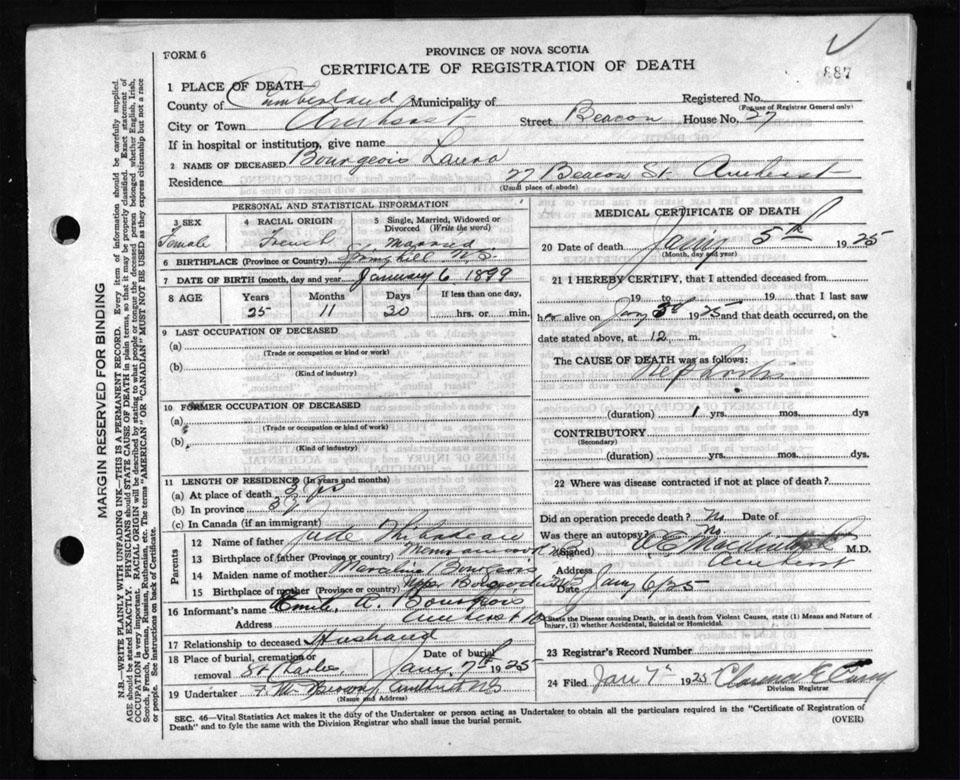 FORM 6
PROVINCE OF NOVA SCOTIA
CERTIFICATE OF REGISTRATION OF DEATH
887
1 PLACE OF DEATH
County of Cumberland Municipality of
Registered No.
(For use of Registrar General only)
City or Town Amherst Street Beacon House No. 27
If in hospital or institution, give name
2 NAME OF DECEASED Bourgeois Laura
Residence 27 Beacon St. Amherst
(Usual place of abode)
PERSONAL AND STATISTICAL INFORMATION
3 SEX 4 RACIAL ORIGIN 5 Single, Married, Widowed or Divorced (Write the word)
Female French Married
6 BIRTHPLACE (Province or Country) Springhill N.S.
7 DATE OF BIRTH (month, day and year) January 6 1899
8 AGE Years Months Days If less than one day,
25 11 30 hrs. or min.
9 LAST OCCUPATION OF DECEASED
(a)
(Trade or occupation or kind of work)
(b)
(Kind of industry)
10 FORMER OCCUPATION OF DECEASED
(a)
(Trade or occupation or kind of work)
(b)
(Kind of industry)
11 LENGTH OF RESIDENCE (In years and months)
(a) At place of death
(b) In province
(c) In Canada (if an immigrant)
Parents
12 Name of father Jude Thibodeau
13 Birthplace of father (Province or country) Memramcook
14 Maiden name of mother Bourgeois
15 Birthplace of mother (Province or country) Upper
16 Informant's name Emile A. Bourgeois
Address Amherst
17 Relationship to deceased Husband
18 Place of burial, cremation or removal St Charles
Date of burial Jany 7th 1925
19 Undertaker Brown Amherst NS
(Name and Address)
MEDICAL CERTIFICATE OF DEATH
20 Date of death Jany 5th 1925
(Month, day and year)
21 I HEREBY CERTIFY, that I attended deceased from
19 to 19 that I last saw
h alive on Jany 1925 and that death occurred, on
date stated above, at 12 m.
The CAUSE OF DEATH was as follows:
(duration) 1 yrs. mos. dys
CONTRIBUTORY
(Secondary)
(duration) yrs. mos. dys.
22 Where was disease contracted if not at place of death?
Did an operation precede death? No Date of
Was there an autopsy? No
(Signed) M.D.
Address Amherst
Date Jany 6/25
*State the Disease causing Death, or in death from Violent Causes, state (1) Means and Nature of Injury, (2) whether Accidental, Suicidal or Homicidal.
23 Registrar's Record Number
24 Filed Jan 7th 1925 Clarence
Division Registrar
SEC. 46—Vital Statistics Act makes it the duty of the Undertaker or person acting as Undertaker to obtain all the particulars required in the "Certificate of Registration of
Death" and to fyle the same with the Division Registrar who shall issue the burial permit.
(OVER)
MARGIN RESERVED FOR BINDING
N.B.—WRITE PLAINLY WITH UNFADING INK—THIS IS A PERMANENT RECORD. Every item of information should be carefully supplied.
AGE should be stated EXACTLY. PHYSICIANS should STATE CAUSE OF DEATH in plain terms, so that it may be properly classified. Exact statement of
OCCUPATION is very important. RACIAL ORIGIN will be described by stating to what people or tongue the deceased person belonged whether English, Irish,
Scotch, French, German, Russian, Ruthenian, etc. The terms "AMERICAN" OR "CANADIAN" MUST NOT BE USED as they express citizenship but not a race
or people. See instructions on back of Certificate.